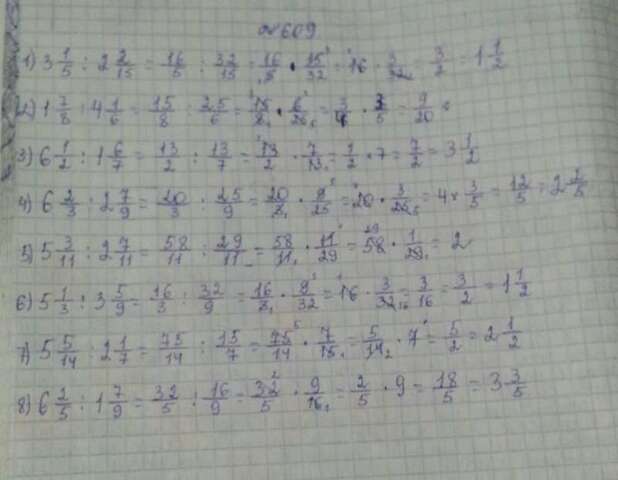 №609
1) 3 1/5 : 2 2/15 = 16/5 : 32/15 = 16/5 · 15/32 = 16 · 3/32 = 3/2 = 1 1/2
2) 1 7/8 : 4 1/6 = 15/8 : 25/6 = 15/8 · 6/25 = 3/4 · 3/5 = 9/20
3) 6 1/2 : 1 6/7 = 13/2 : 13/7 = 13/2 · 7/13 = 1/2 · 7 = 7/2 = 3 1/2
4) 6 2/3 : 2 7/9 = 20/3 · 25/9 = 20/3 · 9/25 = 20 · 3/25 = 4 · 3/5 = 12/5 = 2 2/5
5) 5 3/11 : 2 7/11 = 58/11 : 29/11 = 58/11 · 11/29 = 58 · 1/29 = 2
6) 5 1/3 : 3 5/9 = 16/3 : 32/9 = 16/3 · 9/32 = 16 · 3/32 = 3/16 = 3/2 = 1 1/2
7) 5 5/14 : 2 1/7 = 75/14 : 15/7 = 75/14 · 7/15 = 5/14 · 7 = 5/2 = 2 1/2
8) 6 2/5 : 1 7/9 = 32/5 : 16/9 = 32/5 · 9/16 = 2/5 · 9 = 18/5 = 3 3/5